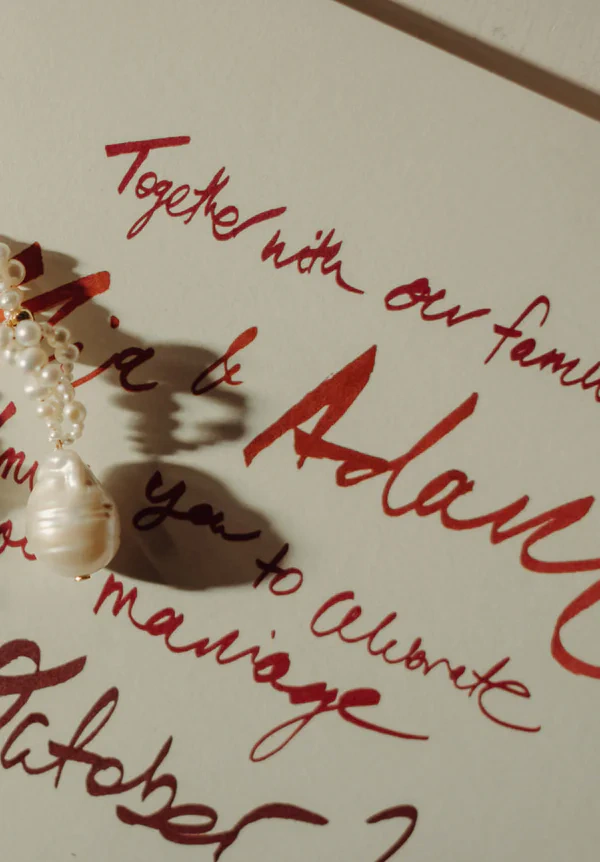 Together with our famili
Mia & Adam
you to celebrate
marriage
October 2